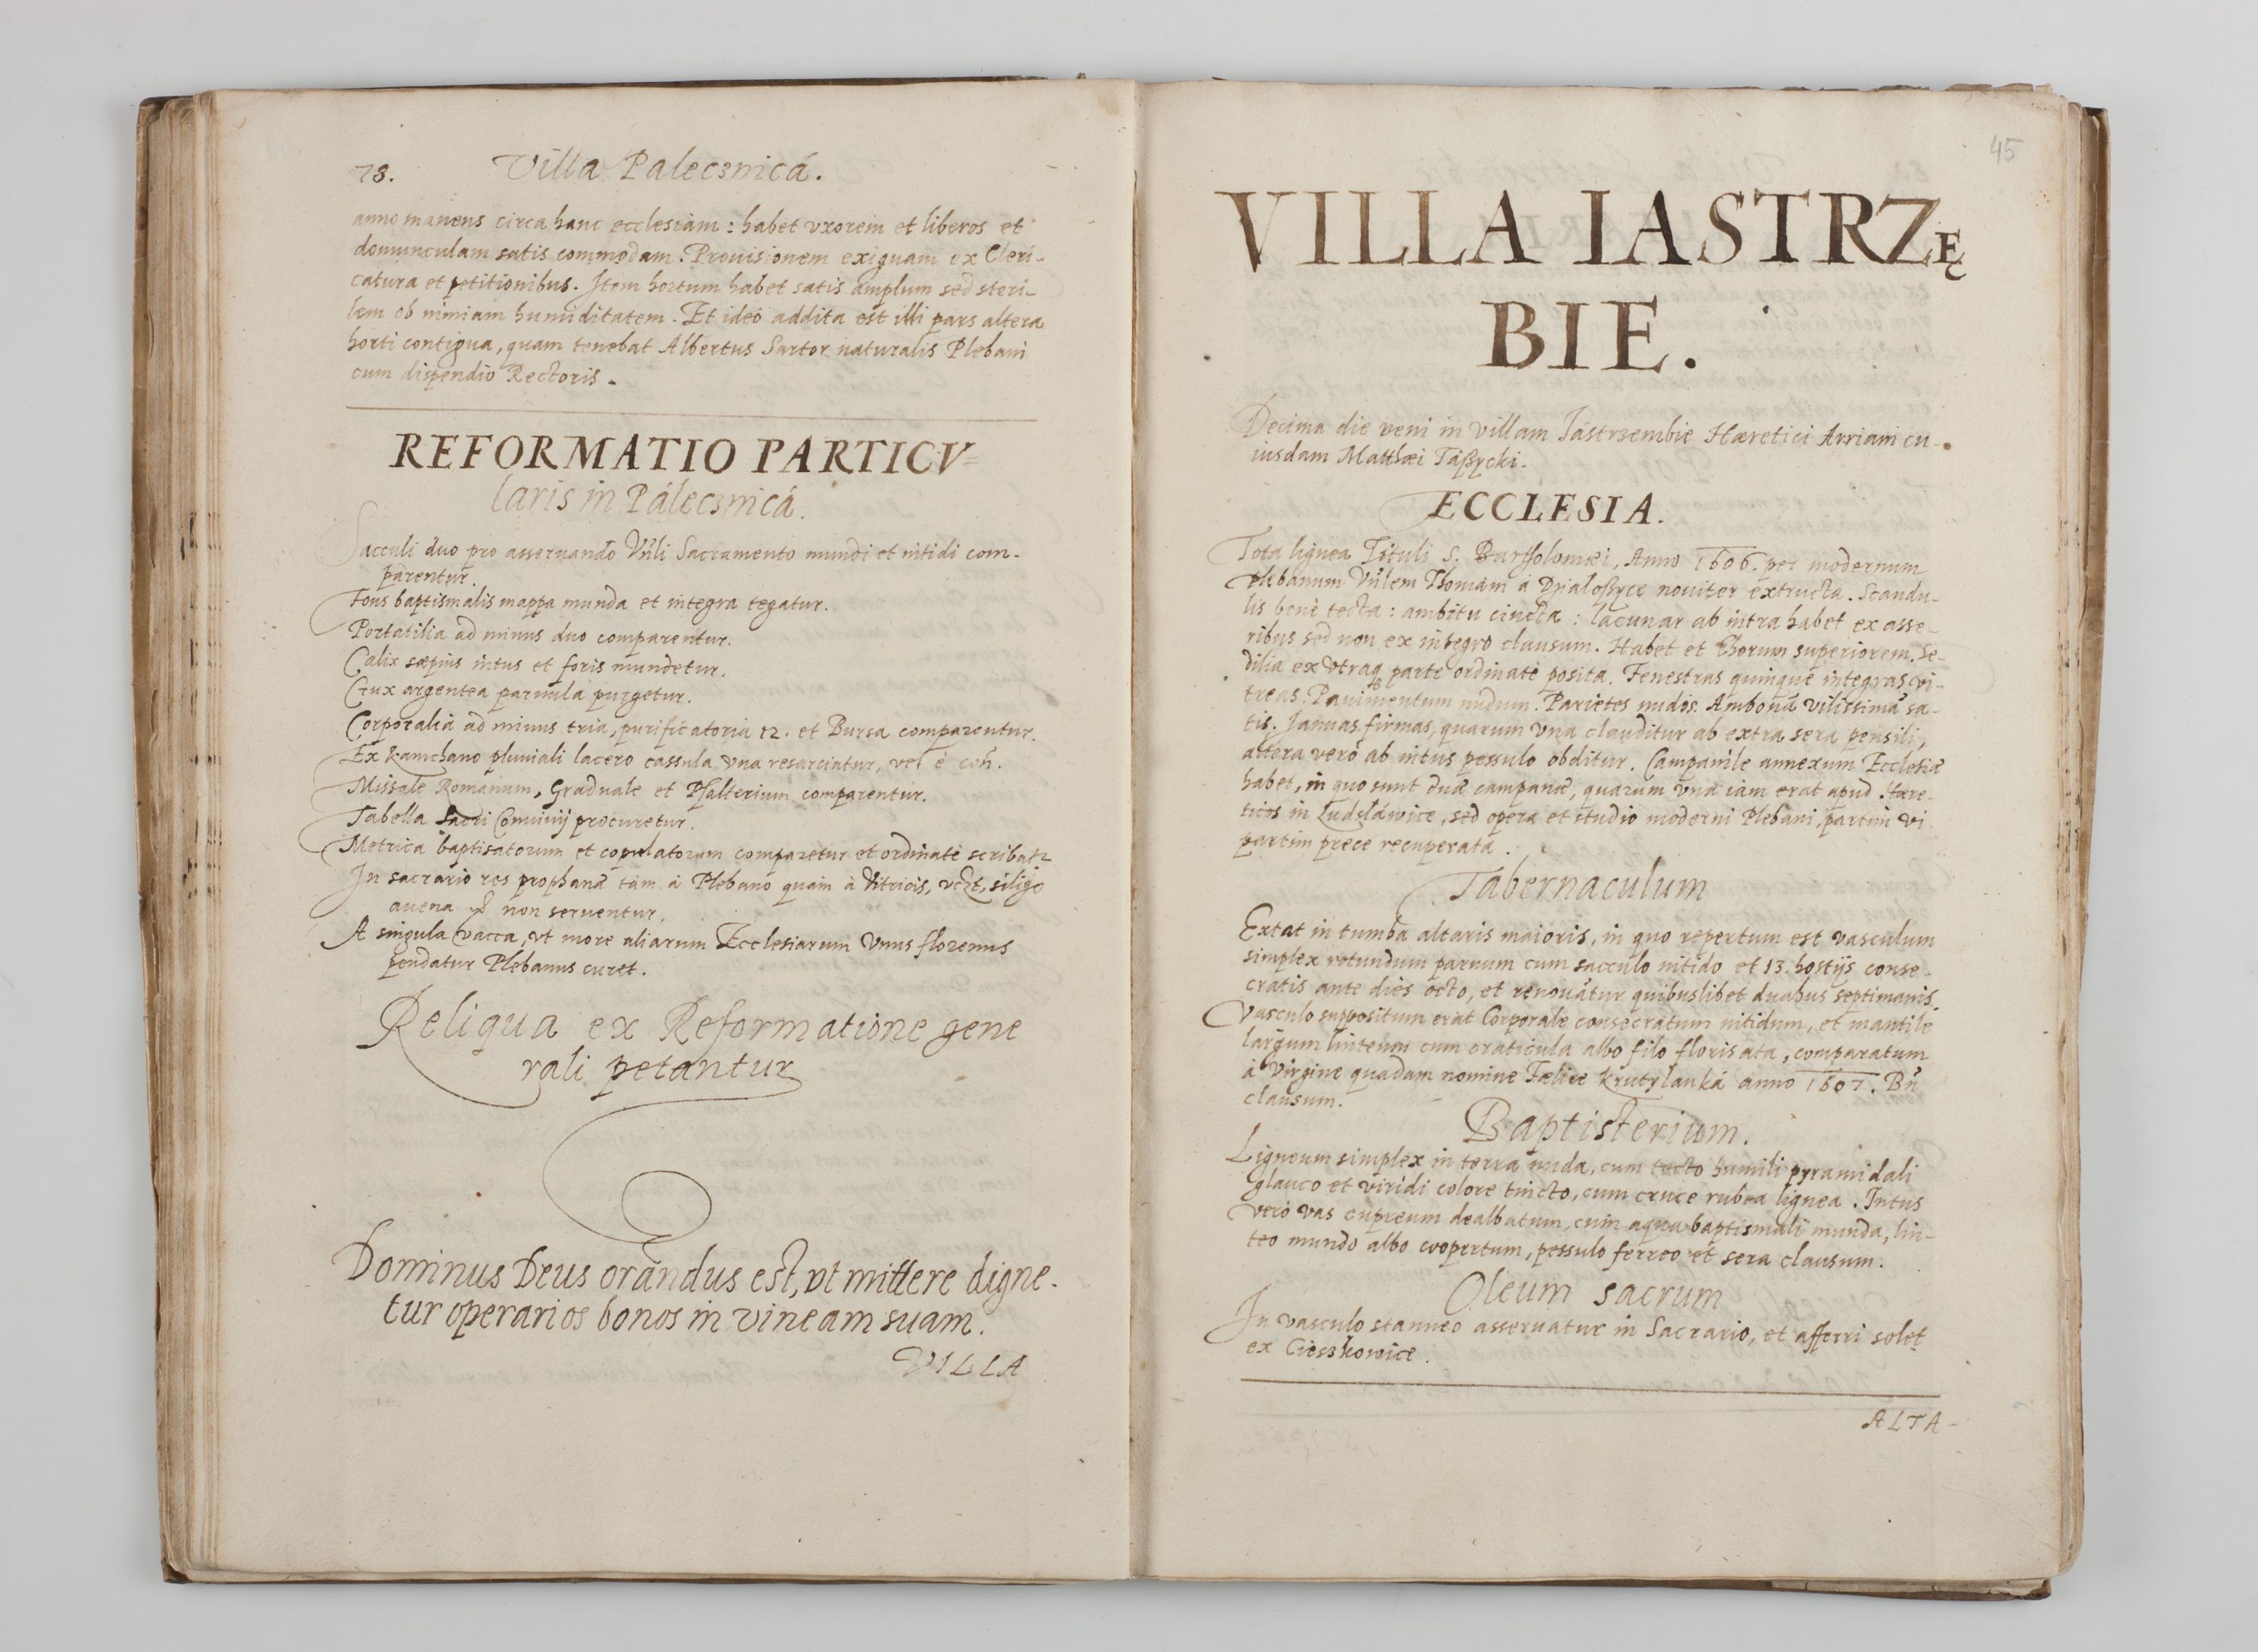 78. Villa Palecznicá.
anno manens circa hanc ecclesiam : habet vxorem et liberos et
domunculam satis commodam. Prouisionem exiguam ex Cleri-
catura et petitionibus. Item hortum habet satis amplum sed steri-
lem ob nimiam humiditatem. Et ideó addita est illi pars altera
horti contigua, quam tenebat Albertus Sartor naturalis Plebani
cum dispendio Rectoris.
REFORMATIO PARTICV=
laris in Pálecznicá.
Sacculi duo pro asseruando Vñli Sacramento mundi et nitidi com-
parentur.
Fons baptismalis mappa munda et integra tegatur.
Portatilia ad minus duo comparentur.
Calix sæpius intus et foris mundetur.
Crux argentea paruula purgetur.
Corporalia ad minus tria, purificatoria 12. et Bursa comparentur.
Ex kamchano pluuiali lacero cassula vna resarciatur, vel è coñ.
Missale Romanum, Graduale et Psalterium comparentur.
Tabella Sacri Conuiuij procuretur.
Metrica baptisatorum et copulatorum comparetur et ordinatè scribatr
In sacrario res prophanæ tàm à Plebano quàm à Vitricis, vt, siligo
auena non seruentur.
A singula vacca, vt more aliarum Ecclesiarum vnus florenus
pendatur Plebanus curet.
Reliqua ex Reformatione gene
rali petantur
Dominus Deus orandus est, vt mittere digne-
tur operarios bonos in vineam suam.
VILLA
45
VILLA IASTRZĘ
BIE.
Decima die veni in villam Jástrzembie Hæretici Arriani cu-
iusdam Matthæi Táßycki.
ECCLESIA.
Tota lignea Tituli S. Bartholomæi, Anno 1606. per modernum
plebanum Vñlem Thomam à Dzialoßyce nouiter extructa. Scandu-
lis benè tecta : ambitu cincta : lacunar ab intra habet ex asse-
ribus sed non ex integro clausum. Habet et Chorum superiorem. Se-
dilia ex vtraq parte ordinatè posita. Fenestras quinque integras vi-
treas. Pauimentum nudum. Parietes nudos. Ambonã vilissimã sa-
tis. Januas firmas, quarum vna clauditur ab extra sera pensili,
altera verò ab intus pessulo obditur. Campanile annexum Ecclesiæ
habet, in quo sunt duæ campanæ, quarum vna iàm erat apud Hære-
ticos in Ludzláwice, sed opera et studio moderni Plebani, partim vi
partim prece recuperata.
Tabernaculum
Extat in tumba altaris maioris, in quo repertum est vasculum
simplex rotundum paruum cum sacculo nitido et 13. hostijs conse-
cratis ante dies octo, et renouãtur quibuslibet duabus septimanis.
Vasculo suppositum erat Corporale consecratum nitidum, et mantile
largum linteum cum craticula albo filo florisata, comparatum
à virgine quadam nomine Fælice Krutylanká anno 1607. Bñ
clausum.
Baptisterium.
Ligneum simplex in terra nuda, cum tecto humili pyramidali
glauco et viridi colore tincto, cum cruce rubea lignea. Intus
verò vas cupreum dealbatum, cum aqua baptismali munda, lin-
teo mundo albo coopertum, pessulo ferreo et sera clausum.
Oleum sacrum
In vasculo stanneo asseruatur in Sacrario, et afferri solet
ex Cieszkowice.
ALTA-